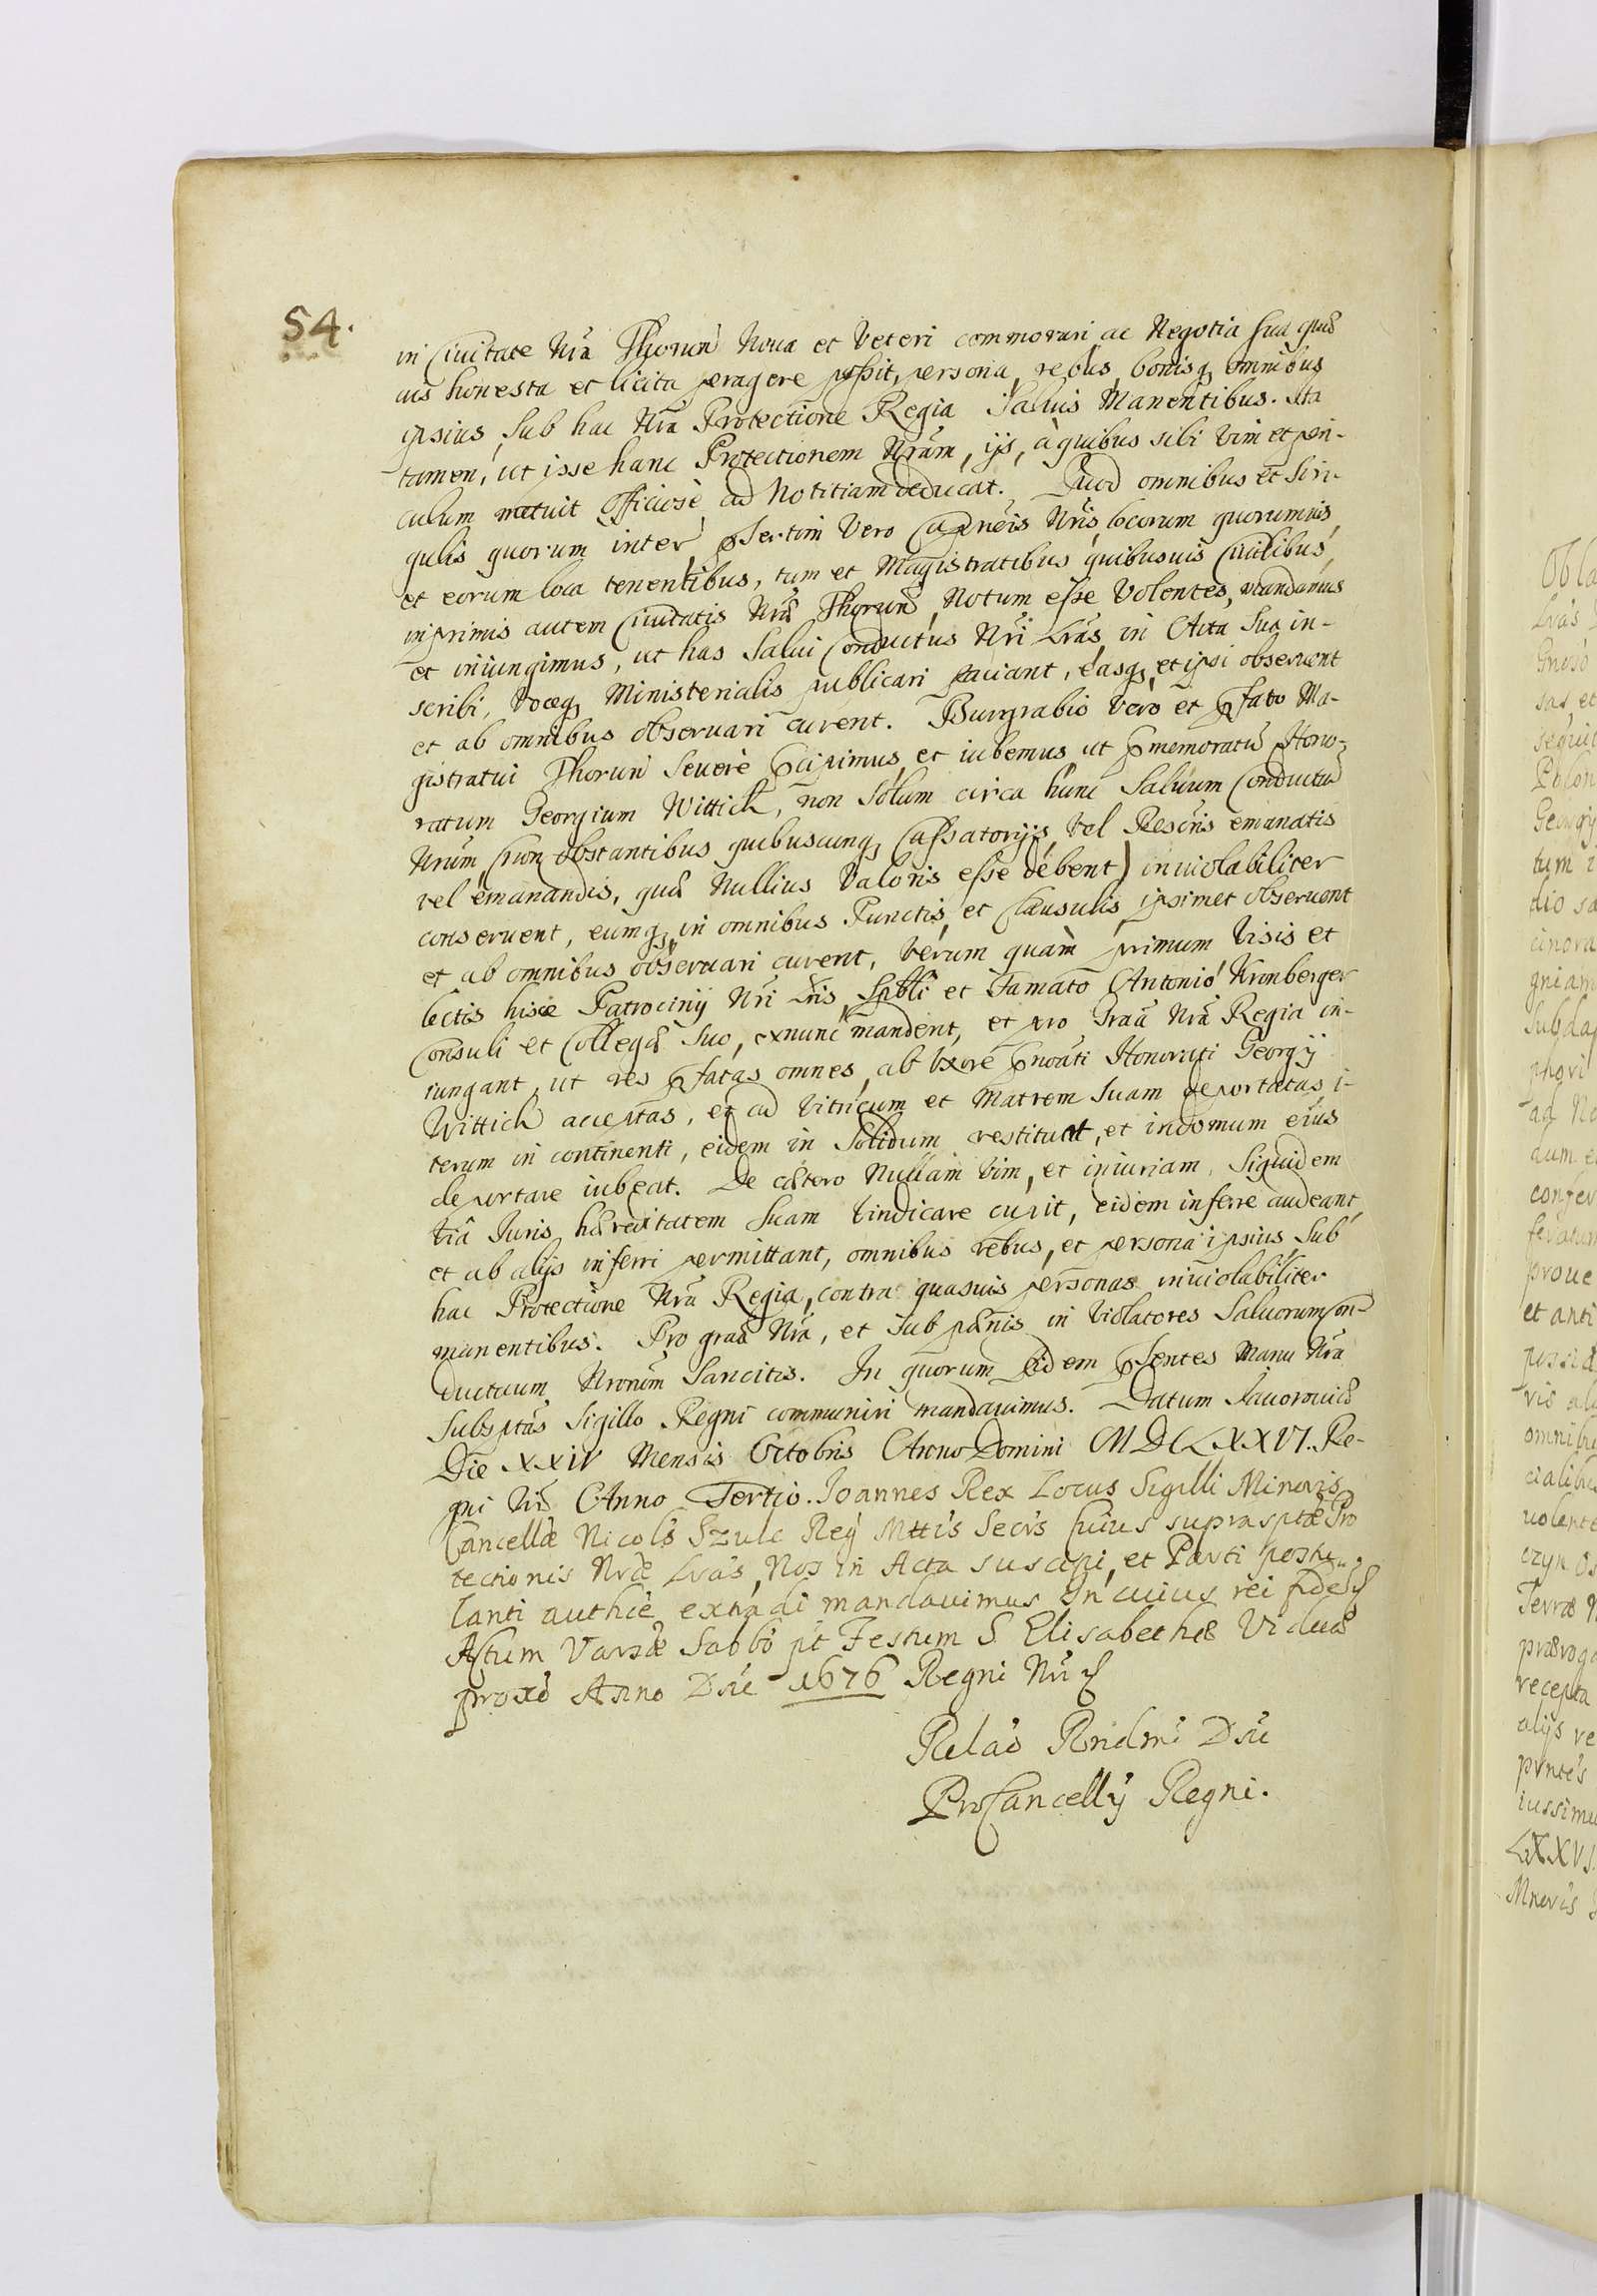 54.
in Ciuitate Nrã Thorun̄ Noua et Veteri commorari, ac Negotia sua quæ
uis honesta et licita peragere possit, persona, rebus, bonisq, omnibus
ipsius, sub hac Nrã Protectione Regia Saluis Manentibus. Ita
tamen, ut ipse hanc Protectionem Nrãm, ijs, à quibus sibi Vim et peri-
culum metuit Officiosè ad Notitiam deducat. Quod omnibus et Sin-
gulis quorum inter, p̃sertim Vero Capneis Nrĩs, locorum quorumuis,
et eorum loca tenentibus, tum et Magistratibus quibusuis Ciuilibus,
inprimis autem Ciuitatis Nræ Thorun̄, Notum esse Volentes, mandamus
et iniungimus, ut has Salui Conductus Nrĩ Lrãs, in Acta Sua in-
scribi, Voceq, Ministerialis publicari faciant, easq, et ipsi obseruent
et ab omnibus obseruari curent. Burgrabio Vero et p̃fato Ma-
gistratui Thorun̄ Seuerè p̃cipimus, et iubemus, ut p̃memoratũ Hono-
ratum Georgium Wittich, non Solum circa hunc Saluum Conductũ
Nrũm, (non obstantibus quibuscunq, Cassatorijs, Vel Rescris emanatis
vel emanandis, quæ Nullius Valoris esse debent) inuiolabiliter
conseruent, eumq, in omnibus Punctis, et Clausulis, ipsimet obseruent
et ab omnibus obseruari curent, Verum quàm primum Visis et
lectis hisce Patrocinij Nrĩ Lrĩs, Spbli et Famato Antonio Kronberger
Consuli et Collegæ Suo, exnunc mandent, et pro Graã Nrã Regia in-
iungant, ut res p̃fatas omnes, ab Vxore p̃noãti Honorati Georgij
Wittich acceptas, et ad Vitricum et Matrem Suam deportatas, i-
terum in continenti, eidem in Solidum restituat, et in domum eius
deportare iubeat. De cætero Nullam Vim, et iniuriam, Siquidem
Viâ Iuris, hæreditatem Suam Vindicare cupit, eidem inferre audeant,
et ab alijs inferri permittant, omnibus rebus, et persona ipsius Sub
hac Protectione Nrã Regia, contra quasuis personas inuiolabiliter
manentibus. Pro graã Nrã, et Sub pænis in Violatores Saluorum Con-
ductuum Nrorum Sancitis. In quorum fidem p̃sentes Manu Nrã
Subsptas Sigillo Regni communiri mandauimus. Datum Jauorouiæ
Die XXIV Mensis Octobris Anno Domini MDCLXXVI. Re-
gni Nrĩ Anno Tertio. Joannes Rex Locus Sigilli Minoris
Cancellæ Nicols Szulc Reg Mttis Secrs huius suprasptæ Pro
tectionis Nræ Lrãs, Nos in Acta suscepi, et Parti postu-
lanti authcè extradi mandauimus In cuius rei fidẽ
Actum Varsæ Sabbo pt Festum S. Elisabethæ Viduæ
proxo Anno Dni 1676 Regni Nrĩ
Relao Rndmi Dni
ProCancellij Regni.